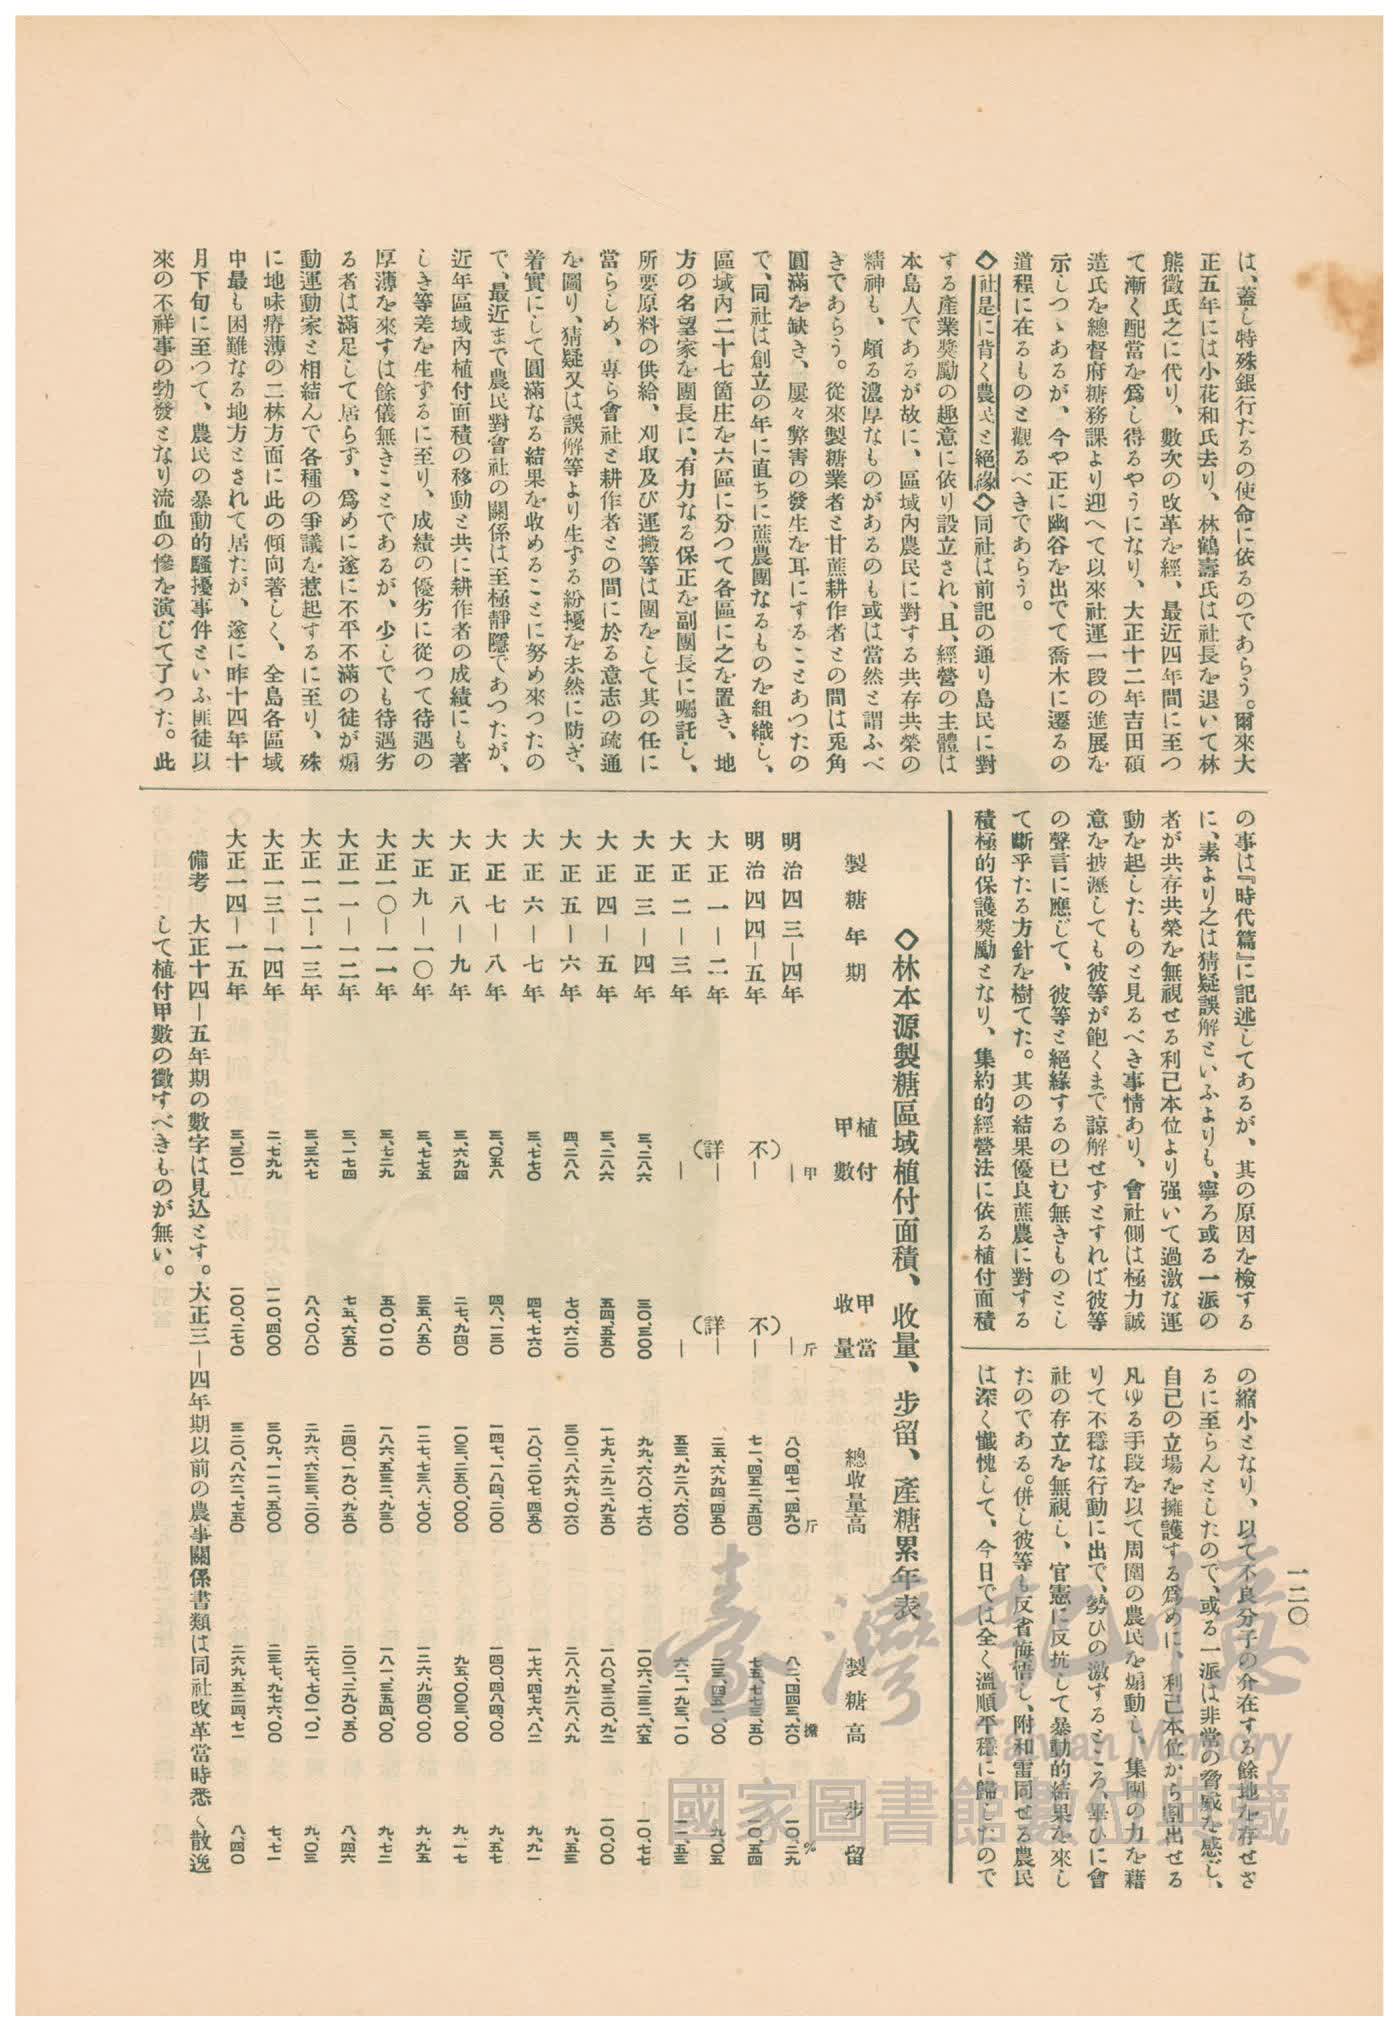 一二〇
は、蓋し特殊銀行たるの使命に依るのであらう。爾來大
正五年には小花和氏去り、林鶴壽氏は社長を退いて林
熊徵氏之に代り、數次の改革を經、最近四年間に至つ
て漸く配當を爲し得るやうになり、大正十二年吉田碩
造氏を總督府糖務課より迎へて以來社運一段の進展を
示しつゝあるが、今や正に幽谷を出でて喬木に遷るの
道程に在るものと觀るべきであらう。
◇社是に背く農民と絕緣◇同社は前記の通り島民に對
する產業奬勵の趣意に依り設立され、且、經營の主體は
本島人であるが故に、區域內農民に對する共存共榮の
精神も、頗る濃厚なものがあるのも或は當然と謂ふべ
きであらう。從來製糖業者と甘蔗耕作者との間は兎角
圓滿を缺き、屢々弊害の發生を耳にすることあつたの
で、同社は創立の年に直ちに蔗農團なるものを組織し、
區域內二十七箇庄を六區に分つて各區に之を置き、地
方の名望家を團長に、有力なる保正を副團長に囑託し、
所要原料の供給、刈取及び運搬等は團をして其の任に
當らしめ、專ら會社と耕作者との間に於る意志の疏通
を圖り、猜疑又は誤解等より生ずる紛擾を未然に防ぎ、
着實にして圓滿なる結果を收めることに努め來つたの
で、最近まで農民對會社の關係は至極靜隱であつたが、
近年區域內植付面積の移動と共に耕作者の成績にも著
しき等差を生ずるに至り、成績の優劣に從つて待遇の
厚薄を來すは餘儀無きことであるが、少しでも待遇劣
る者は滿足して居らず、爲めに遂に不平不滿の徒が煽
動運動家と相結んで各種の爭議を惹起するに至り、殊
に地味瘠薄の二林方面に此の傾向著しく、全島各區域
中最も困難なる地方とされて居たが、遂に昨十四年十
月下旬に至つて、農民の暴動的騷擾事件といふ匪徒以
來の不祥事の勃發となり流血の慘を演じて了つた。此
の事は『時代篇』に記述してあるが、其の原因を檢する
に、素より之は猜疑誤解といふよりも、寧ろ或る一派の
者が共存共榮を無視せる利己本位より强いて過激な運
動を起したものと見るべき事情あり、會社側は極力誠
意を披瀝しても彼等が飽くまで諒解せずとすれば彼等
の聲言に應じて、彼等と絕緣するの已む無きものとし
て斷乎たる方針を樹てた。其の結果優良蔗農に對する
積極的保護奬勵となり、集約的經營法に依る植付面積
の縮小となり、以て不良分子の介在する餘地を存せざ
るに至らんとしたので、或る一派は非常の脅威を感じ、
自己の立場を擁護する爲めに、利己本位から割出せる
凡ゆる手段を以て周圍の農民を煽動し、集團の力を藉
りて不穩な行動に出で、勢ひの激するところ、畢ひに會
社の存立を無視し、官憲に反抗して暴動的結果を來し
たのである。併し彼等も反省悔悟し、附和雷同せる農民
は深く懺愧して、今日では全く溫順平穩に歸したので
◇林本源製糖區域植付面積、收量、步留、產糖累年表
製糖年期 植付甲數 甲當收量 總收量高 製糖高 步留
明治四三―四年 ―甲 ―斤 八〇、四七一、四九〇斤 八二、四四三、六〇擔 一〇、二九%
明治四四―五年 ― ― 七一、四五二、五四〇 七五、七七三、五〇 一〇、五四
大正一―二年 (不詳) (不詳) 二五、九四四、四五〇 二三、四五一、〇〇 九、〇五
大正二―三年 ― ― 五三、九二八、六〇〇 六二、一九三、一〇 一一、五三
大正三―四年 三、二八六 三〇、三〇〇 九九、六八〇、七六〇 一〇六、二三二、六五 一〇、七七
大正四―五年 三、二八六 五四、五五〇 一七九、二九二、九五〇 一八〇、三二〇、九二 一〇、〇〇
大正五―六年 四、二八八 七〇、六二〇 三〇二、八六九、〇六〇 二八八、九二八、八九 九、五三
大正六―七年 三、七七〇 四七、七六〇 一八〇、二〇七、四五〇 一七六、四七六、八二 九、九一
大正七―八年 三、〇五八 四八、一三〇 一四七、一八四、二〇〇 一四〇、四八四、〇〇 九、五七
大正八―九年 三、六九四 二七、九四〇 一〇三、二五〇、〇〇〇 九五、〇〇三、〇〇 九、一七
大正九―一〇年 三、七七五 三五、八五〇 一二七、七三八、七〇〇 一二六、九四〇、〇〇 九、九五
大正一〇―一一年 三、七二九 五〇、〇一〇 一八六、五三二、九三〇 一八一、三五四、〇〇 九、七二
大正一一―一二年 三、一七四 七五、六五〇 二四〇、一九〇、九五〇 二〇二、二九〇、五〇 八、四六
大正一二―一三年 三、三六七 八八、〇八〇 二九六、六三三、二〇〇 二六七、七〇一、〇一 九、〇三
大正一三―一四年 二、七九九 一一〇、四〇〇 三〇九、一一二、五〇〇 二三七、九七六、〇〇 七、七一
大正一四―一五年 三、三〇一 一〇〇、二七〇 三二〇、八六二、七五〇 二六九、五二四、七一 八、四〇
備考 大正十四―五年期の數字は見込とす。大正三―四年期以前の農事關係書類は同社改革當時悉く散逸
して植付甲數の徵すべきものが無い。
臺灣記憶
Taiwan Memory
國家圖書館數位典藏